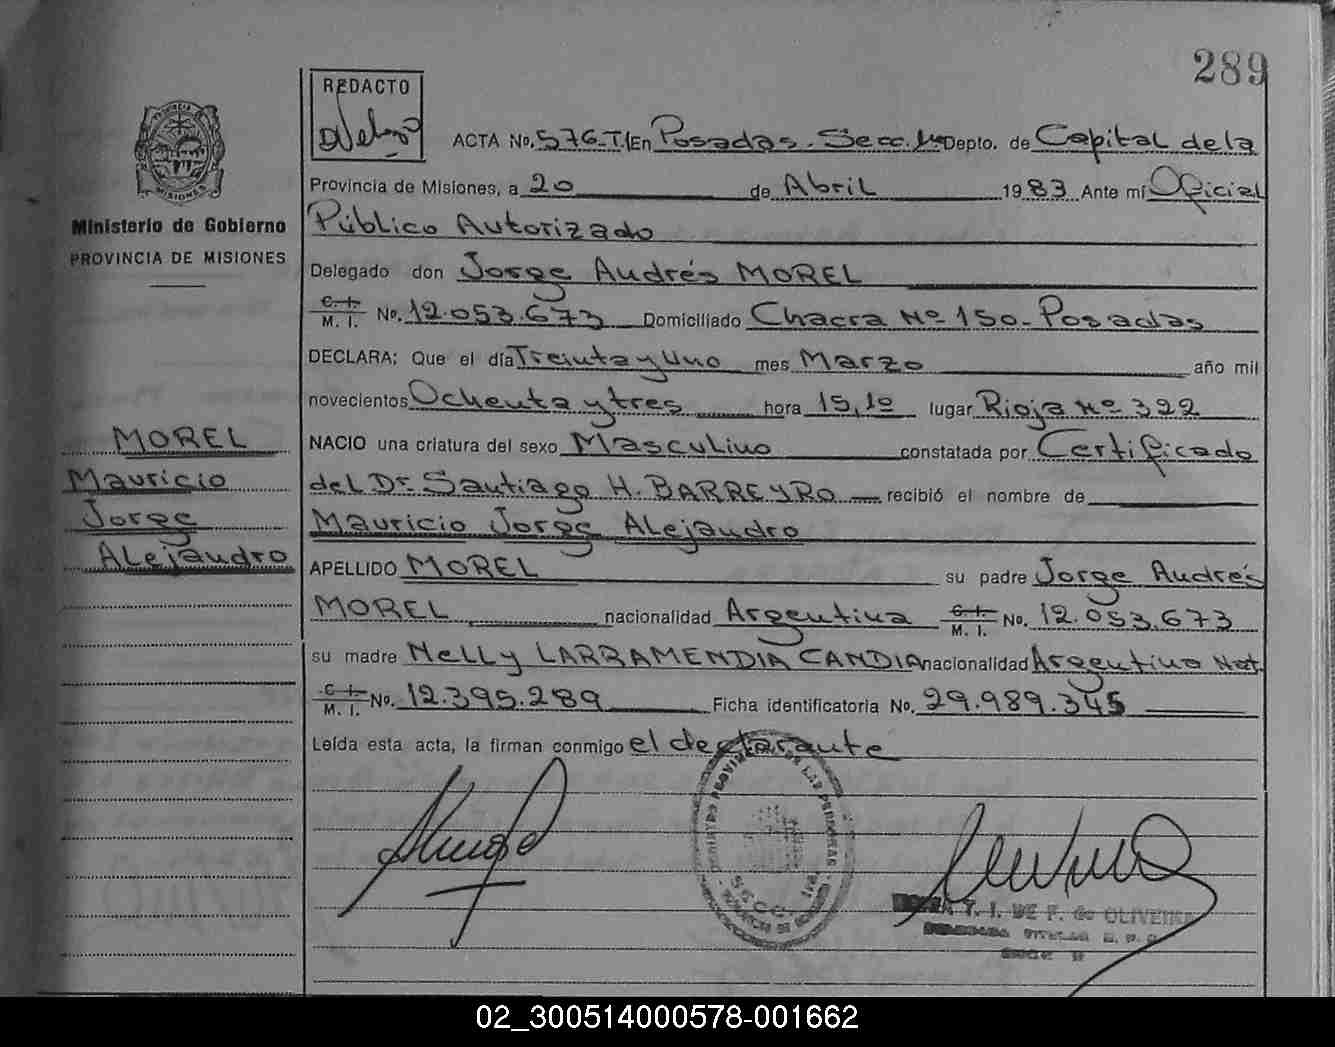 289
REDACTO
PROVINCIA
MISIONES
Ministerio de Gobierno
PROVINCIA DE MISIONES
ACTA No. 576-T.I En Posadas. Secc. 1ra Depto. de Capital de la
Provincia de Misiones, a 20 de Abril 1983 Ante mí Oficial
Público Autorizado
Delegado don Jorge Andrés MOREL
C. I.
M. I. No. 12.053.673 Domiciliado Chacra Nº 150 - Posadas
DECLARA: Que el día Treinta y Uno mes Marzo año mil
novecientos Ochenta y tres hora 15,10 lugar Rioja Nº 322
NACIO una criatura del sexo Masculino constatada por Certificado
del Dr. Santiago H. BARREYRO recibió el nombre de
Mauricio Jorge Alejandro
APELLIDO MOREL su padre Jorge Andrés
MOREL nacionalidad Argentina C. I. M. I. No. 12.053.673
su madre Nelly LARRAMENDIA CANDIA nacionalidad Argentina Nat.
C. I.
M. I. No. 12.395.289 Ficha identificatoria No. 29.989.345
Leída esta acta, la firman conmigo el declarante
MOREL
Mauricio
Jorge
Alejandro
REGISTRO PROVINCIAL DE LAS PERSONAS
T. I. DE F. de OLIVEIRA
02_300514000578-001662